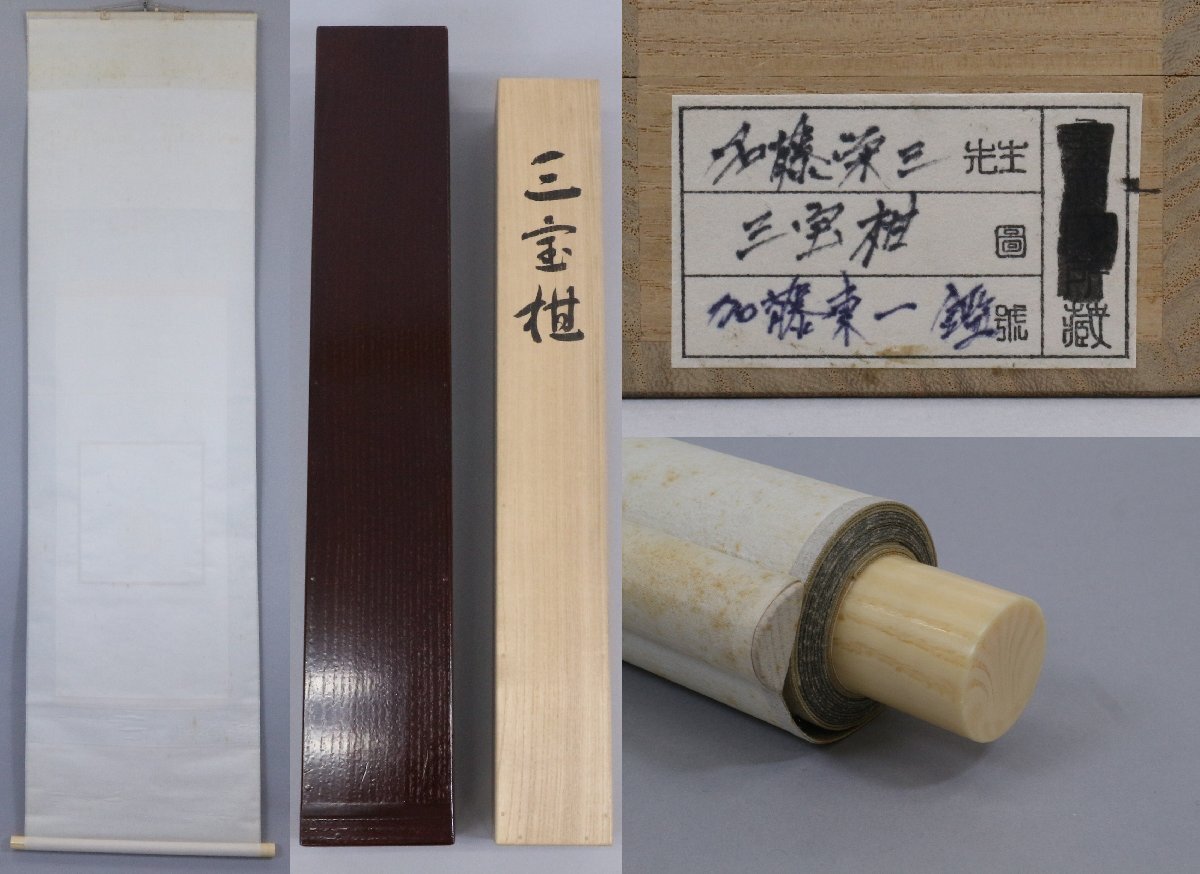 三宝柑
加藤栄三 先生
三宝柑 圖
加藤東一鑑 號
藏